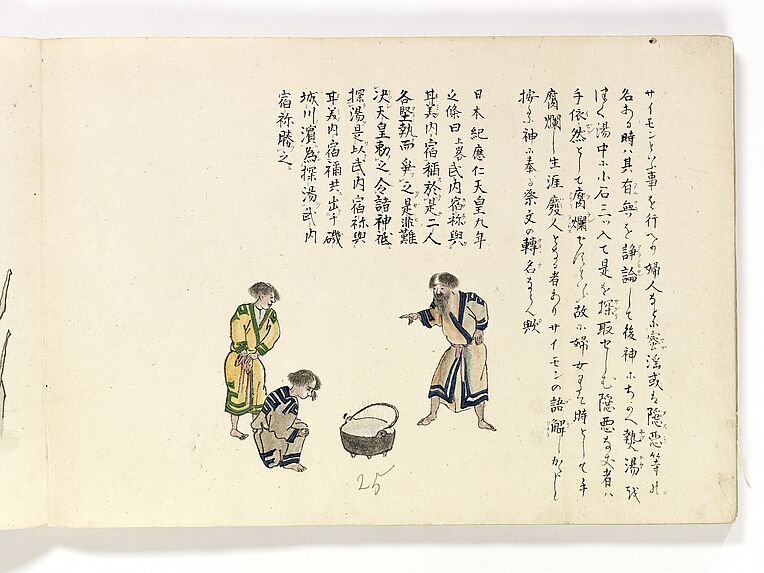 サイモンといふ事を行へり婦人などに密淫或は隠悪等の
名ある時ハ其有無を諍論して後神にちかへ熱湯を
湯中に小石三ツ入て是を探取せしむ隠悪なき者ハ
手依然として腐爛せすといふ故に婦女また時として手
腐爛し生涯廢人となる者ありサイモンの語解しかたし
按るに神に奉る祭文の轉名ならん歟
日本紀應仁天皇九年
之條曰上畧武内宿祢與
甘美内宿禰於是二人
各堅執而爭之是非難
決天皇勅之令請神祇
探湯是以武内宿祢與
甘美内宿禰共出于磯
城川濱為探湯武内
宿祢勝之
25